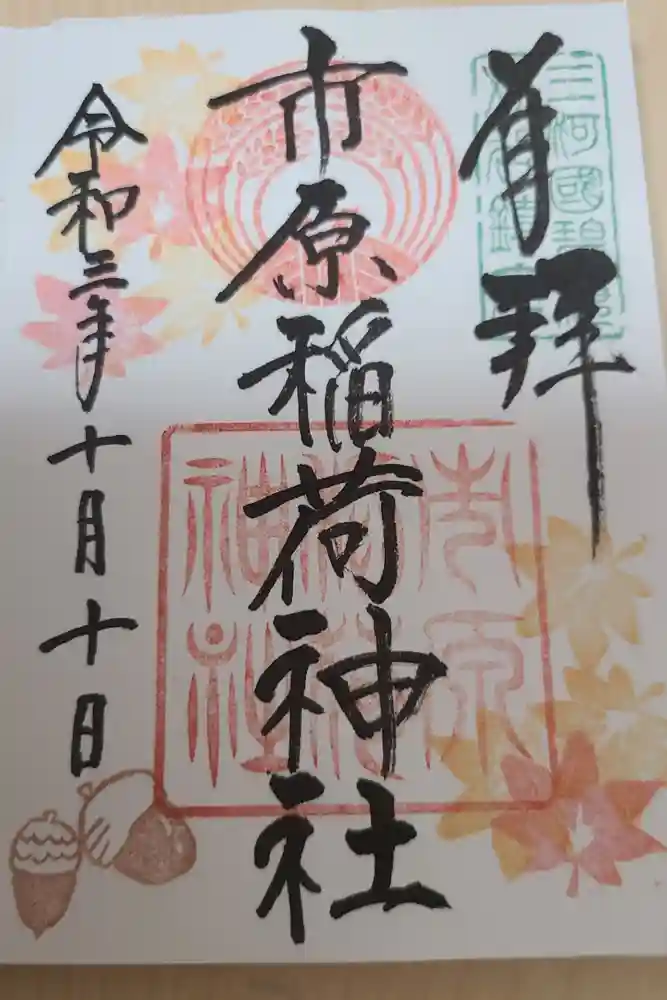 奉拝
三河國碧
鎮
市原稲荷神社
市原
神社
令和三年十月十日